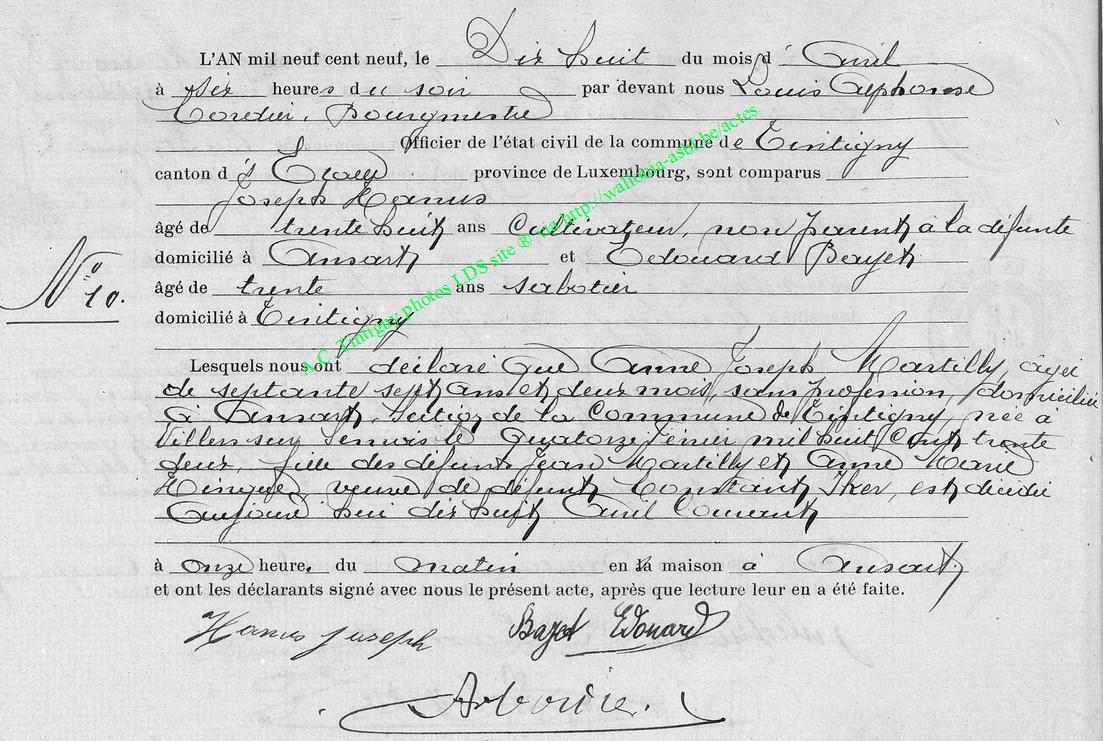 L'AN mil neuf cent neuf, le Dix huit du mois d' Avril
à six heures du soir par devant nous Louis Alphonse
Cordier, Bourgmestre
Officier de l'état civil de la commune de Tintigny
canton d' Etalle province de Luxembourg, sont comparus
Joseph Hanus
âgé de trente huit ans Cultivateur, non parent à la défunte
domicilié à Ansart et Edouard Bayet
N° 10.
âgé de trente ans sabotier
domicilié à Tintigny
A.C. Tintigny photos LDS site ® via http://wallonia-asbl.be/actes
Lesquels nous ont déclaré que Anne Joseph Martilly, agée
de septante sept ans et deux mois, sans profession, domiciliée
à Ansart, section de la Commune de Tintigny, née à
Villers sur Semois le quatorze février mil huit cent trente
deux, fille des défunts Jean Martilly et Anne Marie
veuve de défunt Constant Iker, est décédée
aujourd'hui dix huit Avril Courant
à onze heures du matin en la maison à Ansart
et ont les déclarants signé avec nous le présent acte, après que lecture leur en a été faite.
Hanus Joseph Bayet Edouard